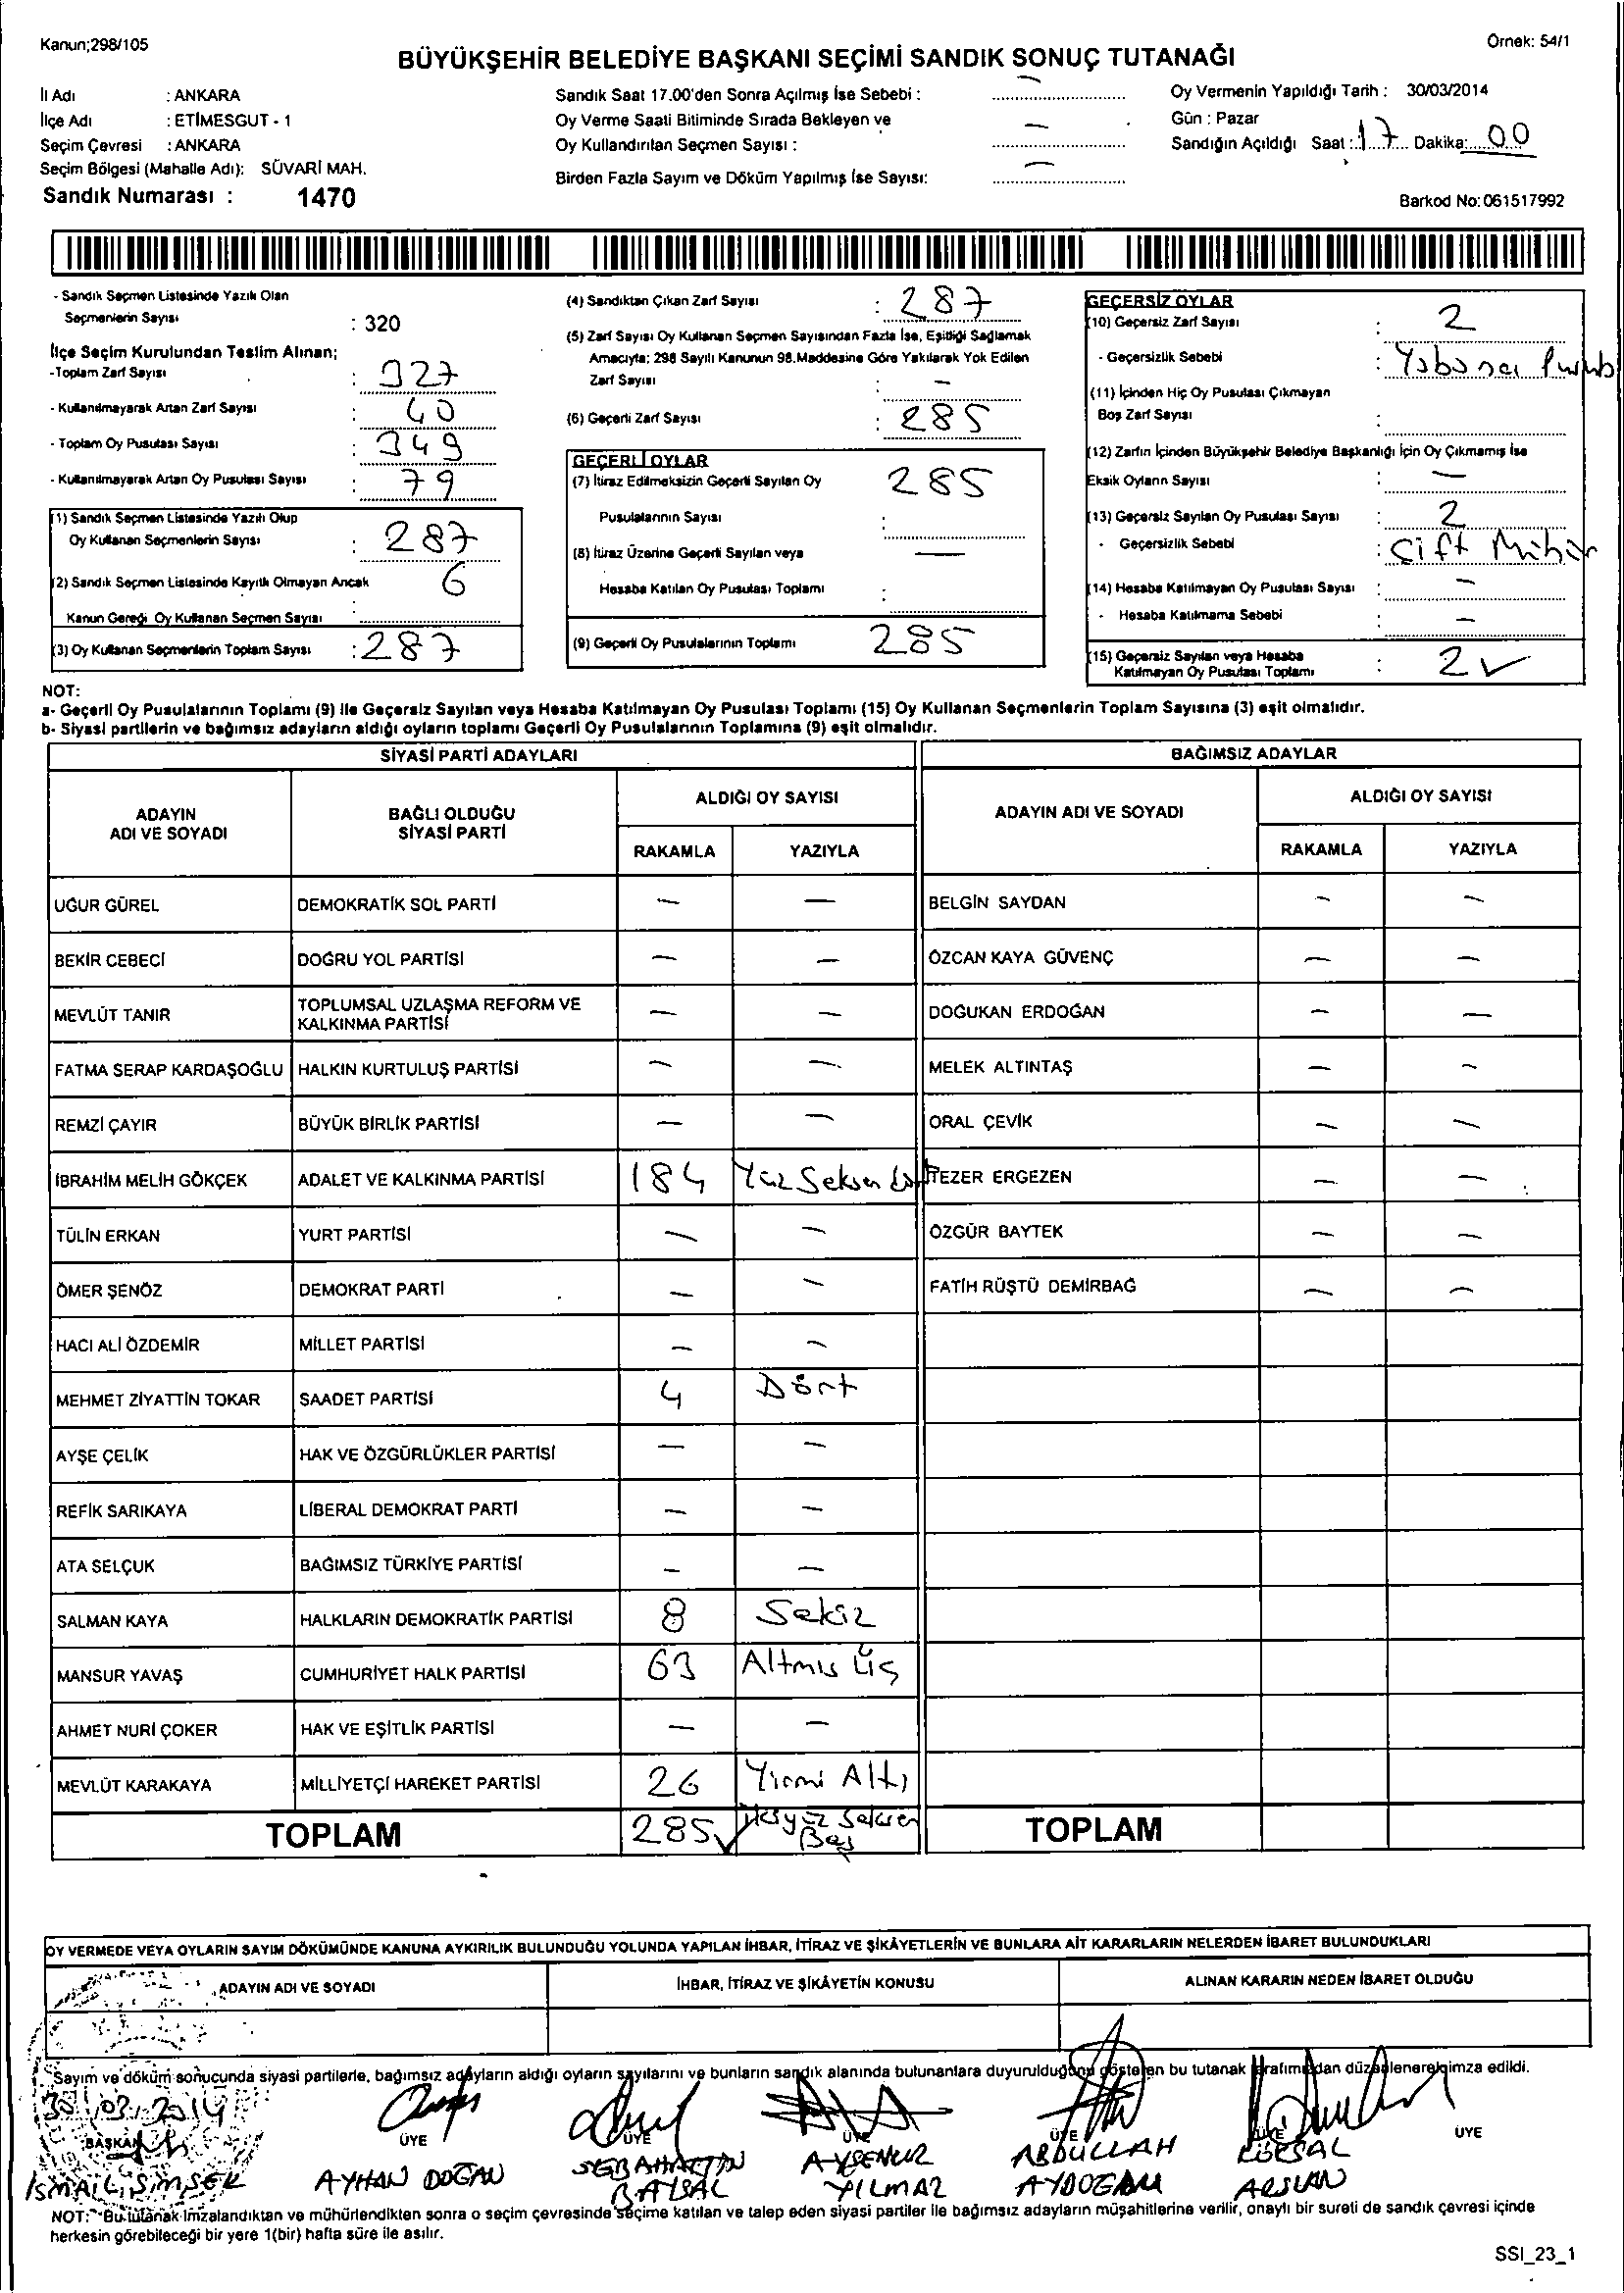 Kanun;298/105
Örnek: 54/1
BÜYÜKŞEHİR BELEDİYE BAŞKANI SEÇİMİ SANDIK SONUÇ TUTANAĞI
İl Adı : ANKARA
İlçe Adı : ETİMESGUT - 1
Seçim Çevresi : ANKARA
Seçim Bölgesi (Mahalle Adı): SÜVARİ MAH.
Sandık Numarası : 1470
Sandık Saat 17.00'den Sonra Açılmış İse Sebebi : —
Oy Verme Saati Bitiminde Sırada Bekleyen ve
Oy Kullandırılan Seçmen Sayısı : —
Birden Fazla Sayım ve Döküm Yapılmış İse Sayısı: —
Oy Vermenin Yapıldığı Tarih : 30/03/2014
Gün : Pazar
Sandığın Açıldığı Saat : 17 Dakika: 00
Barkod No: 061517992
- Sandık Seçmen Listesinde Yazılı Olan
Seçmenlerin Sayısı : 320
İlçe Seçim Kurulundan Teslim Alınan;
-Toplam Zarf Sayısı : 327
- Kullanılmayarak Artan Zarf Sayısı : 40
- Toplam Oy Pusulası Sayısı : 349
- Kullanılmayarak Artan Oy Pusulası Sayısı : 79
(1) Sandık Seçmen Listesinde Yazılı Olup
Oy Kullanan Seçmenlerin Sayısı : 287
(2) Sandık Seçmen Listesinde Kayıtlı Olmayan Ancak 6
Kanun Gereği Oy Kullanan Seçmen Sayısı :
(3) Oy Kullanan Seçmenlerin Toplam Sayısı : 287
(4) Sandıktan Çıkan Zarf Sayısı : 287
(5) Zarf Sayısı Oy Kullanan Seçmen Sayısından Fazla İse, Eşitliği Sağlamak
Amacıyla; 298 Sayılı Kanunun 98.Maddesine Göre Yakılarak Yok Edilen
Zarf Sayısı : —
(6) Geçerli Zarf Sayısı : 285
GEÇERLİ OYLAR
(7) İtiraz Edilmeksizin Geçerli Sayılan Oy 285
Pusulalarının Sayısı :
(8) İtiraz Üzerine Geçerli Sayılan veya —
Hesaba Katılan Oy Pusulası Toplamı :
(9) Geçerli Oy Pusulalarının Toplamı 285
GEÇERSİZ OYLAR
(10) Geçersiz Zarf Sayısı : 2
- Geçersizlik Sebebi : Yabancı
(11) İçinden Hiç Oy Pusulası Çıkmayan
Boş Zarf Sayısı :
(12) Zarfın İçinden Büyükşehir Belediye Başkanlığı İçin Oy Çıkmamış İse
Eksik Oyların Sayısı : —
(13) Geçersiz Sayılan Oy Pusulası Sayısı : 2
- Geçersizlik Sebebi : Çift Mühür
(14) Hesaba Katılmayan Oy Pusulası Sayısı : —
- Hesaba Katılmama Sebebi : —
(15) Geçersiz Sayılan veya Hesaba
Katılmayan Oy Pusulası Toplamı : 2 ✓
NOT:
a- Geçerli Oy Pusulalarının Toplamı (9) ile Geçersiz Sayılan veya Hesaba Katılmayan Oy Pusulası Toplamı (15) Oy Kullanan Seçmenlerin Toplam Sayısına (3) eşit olmalıdır.
b- Siyasi partilerin ve bağımsız adayların aldığı oyların toplamı Geçerli Oy Pusulalarının Toplamına (9) eşit olmalıdır.
SİYASİ PARTİ ADAYLARI
BAĞIMSIZ ADAYLAR
ADAYIN ADI VE SOYADI
BAĞLI OLDUĞU SİYASİ PARTİ
ALDIĞI OY SAYISI
RAKAMLA YAZIYLA
ADAYIN ADI VE SOYADI
ALDIĞI OY SAYISI
RAKAMLA YAZIYLA
UĞUR GÜREL DEMOKRATİK SOL PARTİ — — BELGİN SAYDAN — —
BEKİR CEBECİ DOĞRU YOL PARTİSİ — — ÖZCAN KAYA GÜVENÇ — —
MEVLÜT TANIR TOPLUMSAL UZLAŞMA REFORM VE KALKINMA PARTİSİ — — DOĞUKAN ERDOĞAN — —
FATMA SERAP KARDAŞOĞLU HALKIN KURTULUŞ PARTİSİ — — MELEK ALTINTAŞ — —
REMZİ ÇAYIR BÜYÜK BİRLİK PARTİSİ — — ORAL ÇEVİK — —
İBRAHİM MELİH GÖKÇEK ADALET VE KALKINMA PARTİSİ 184 Yüz Seksen Dört TEZER ERGEZEN — —
TÜLİN ERKAN YURT PARTİSİ — — ÖZGÜR BAYTEK — —
ÖMER ŞENÖZ DEMOKRAT PARTİ — — FATİH RÜŞTÜ DEMİRBAĞ — —
HACI ALİ ÖZDEMİR MİLLET PARTİSİ — —
MEHMET ZİYATTİN TOKAR SAADET PARTİSİ 4 Dört
AYŞE ÇELİK HAK VE ÖZGÜRLÜKLER PARTİSİ — —
REFİK SARIKAYA LİBERAL DEMOKRAT PARTİ — —
ATA SELÇUK BAĞIMSIZ TÜRKİYE PARTİSİ — —
SALMAN KAYA HALKLARIN DEMOKRATİK PARTİSİ 8 Sekiz
MANSUR YAVAŞ CUMHURİYET HALK PARTİSİ 63 Altmış Üç
AHMET NURİ ÇOKER HAK VE EŞİTLİK PARTİSİ — —
MEVLÜT KARAKAYA MİLLİYETÇİ HAREKET PARTİSİ 26 Yirmi Altı
TOPLAM 285 ✓ İkiyüz Seksen Beş TOPLAM
OY VERMEDE VEYA OYLARIN SAYIM DÖKÜMÜNDE KANUNA AYKIRILIK BULUNDUĞU YOLUNDA YAPILAN İHBAR, İTİRAZ VE ŞİKÂYETLERİN VE BUNLARA AİT KARARLARIN NELERDEN İBARET BULUNDUKLARI
ADAYIN ADI VE SOYADI İHBAR, İTİRAZ VE ŞİKÂYETİN KONUSU ALINAN KARARIN NEDEN İBARET OLDUĞU
Sayım ve döküm sonucunda siyasi partilerle, bağımsız adayların aldığı oyların sayılarını ve bunların sandık alanında bulunanlara duyurulduğunu gösteren bu tutanak tarafımızdan düzenlenerek imza edildi.
30/03/2014
BAŞKAN ÜYE ÜYE ÜYE ÜYE ÜYE ÜYE
İSMAİL ŞİMŞEK AYHAN DOĞAN SEBAHATTİN BAYSAL AYŞENUR YILMAZ ABDULLAH AYDOĞAN KÖKSAL ARSLAN
NOT: Bu tutanak imzalandıktan ve mühürlendikten sonra o seçim çevresinde seçime katılan ve talep eden siyasi partiler ile bağımsız adayların müşahitlerine verilir, onaylı bir sureti de sandık çevresi içinde
herkesin görebileceği bir yere 1(bir) hafta süre ile asılır.
SSI_23_1